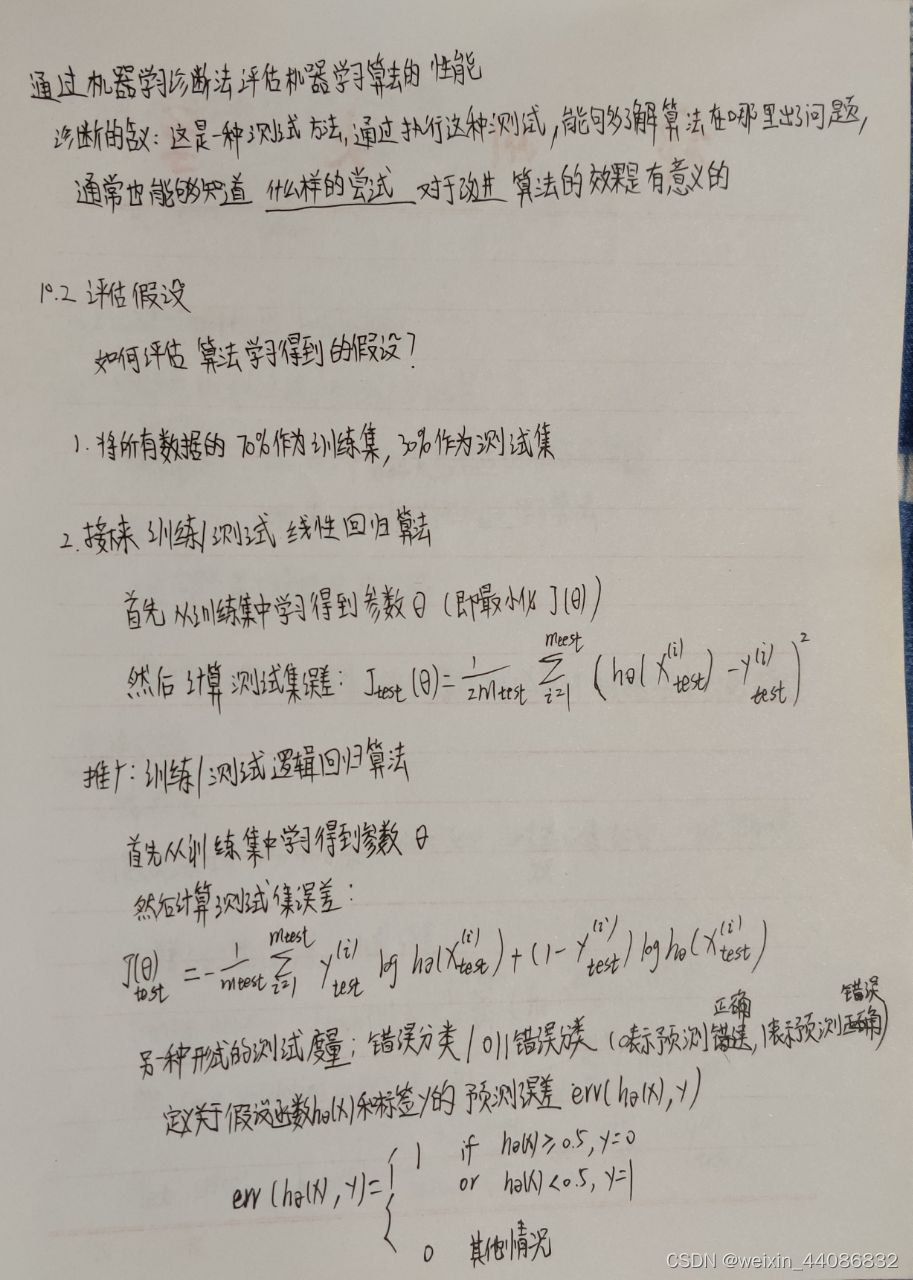 通过机器学习诊断法评估机器学习算法的性能
诊断的含义：这是一种测试方法，通过执行这种测试，能够了解算法在哪里出了问题，
通常也能够知道 什么样的尝试 对于改进 算法的效果是有意义的
10.2 评估假设
如何评估 算法学习得到的假设？
1. 将所有数据的 70%作为训练集，30%作为测试集
2. 接下来 训练/测试 线性回归算法
首先从训练集中学习得到参数 θ（即最小化 J(θ)）
然后计算测试集误差：J_test(θ)=1/(2m_test) Σ_{i=1}^{m_test} (hθ(x_test^(i)) − y_test^(i))²
推广：训练/测试逻辑回归算法
首先从训练集中学习得到参数 θ
然后计算测试集误差：
J(θ)_test = −1/m_test Σ_{i=1}^{m_test} y_test^(i) log hθ(x_test^(i)) + (1−y_test^(i)) log hθ(x_test^(i))
另一种形式的测试度量：错误分类/0|1错误分类（0表示预测正确，1表示预测错误）
定义关于假设函数hθ(x)和标签y的 预测误差 err(hθ(x),y)
err(hθ(x),y)={ 1 if hθ(x)≥0.5, y=0
or hθ(x)<0.5, y=1
0 其他情况
CSDN @weixin_44086832